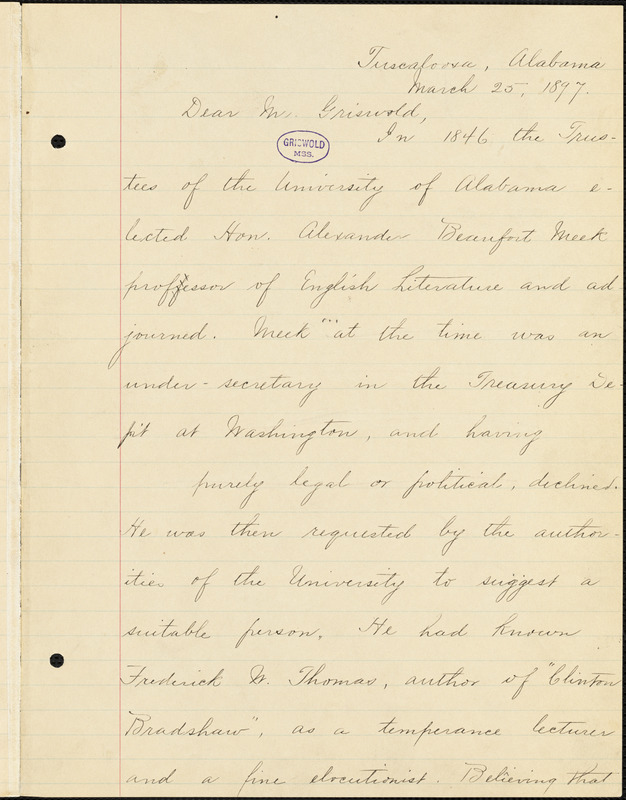 Tuscaloosa, Alabama
March 25, 1897.
Dear Mr. Griswold,
GRISWOLD
MSS.
In 1846 the Trus-
tees of the University of Alabama e-
lected Hon. Alexander Beaufort Meek
professor of English Literature and ad-
journed. Meek at the time was an
under-secretary in the Treasury De-
p't at Washington, and having
purely legal or political, declined.
He was then requested by the author-
ities of the University to suggest a
suitable person. He had known
Frederick W. Thomas, author of "Clinton
Bradshaw", as a temperance lecturer
and a fine elocutionist. Believing that